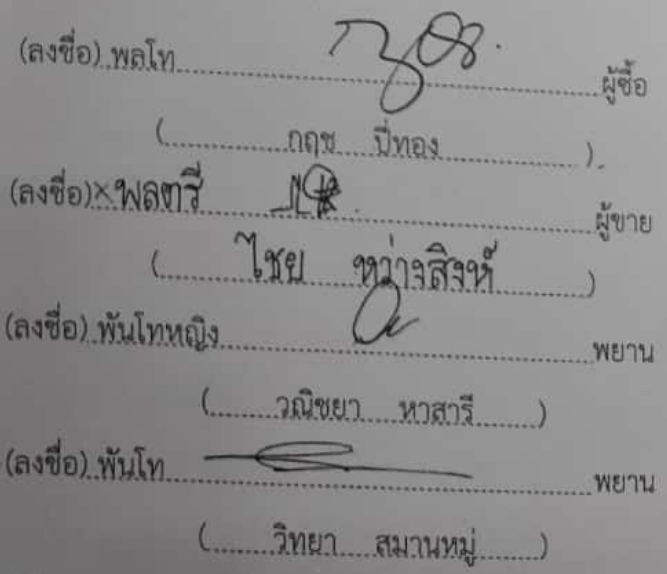 (ลงชื่อ) พลโท ผู้ซื้อ
( กฤช ปี่ทอง ).
(ลงชื่อ)×พลตรี ผู้ขาย
( ไชย หว่างสิงห์ )
(ลงชื่อ) พันโทหญิง พยาน
( วณิชยา หาสารี )
(ลงชื่อ) พันโท พยาน
( วิทยา สมานหมู่ )